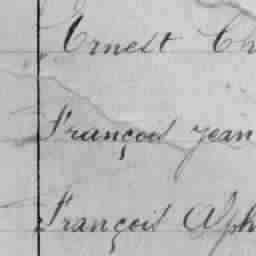 Ernest Ch
François Jean
François Alph